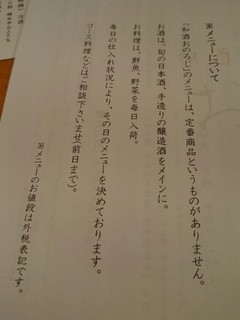 ※メニューについて
「和酒おのろじ」のメニューは、定番商品というものがありません。
お酒は、旬の日本酒、手造りの醸造酒をメインに。
お料理は、鮮魚、野菜を毎日入荷。
毎日の仕入れ状況により、その日のメニューを決めております。
コース料理などはご相談下さいませ(前日まで)。
※メニューのお値段は外税表記です。